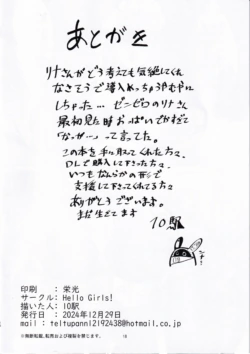 あとがき
リナさんがどう考えても気絶してくれ
なさそうで導入めっちゃうやむやに
しちゃった…ゼンゼロのリナさん
最初見た時おっぱいでかすぎて
「なっが…」って言ってた。
この本を手に取ってくれた方々、
DLで購入して下さった方々、
いつもなんらかの形で
支援して下さってくれてる方々
ありがとうございます。
まだ生きてます
10駅
印刷 : 栄光
サークル: Hello Girls!
描いた人: 10駅
発行日 : 2024年12月29日
mail : teltupann12192438@hotmail.co.jp
※無断転載、転売および複製を禁じます。
18